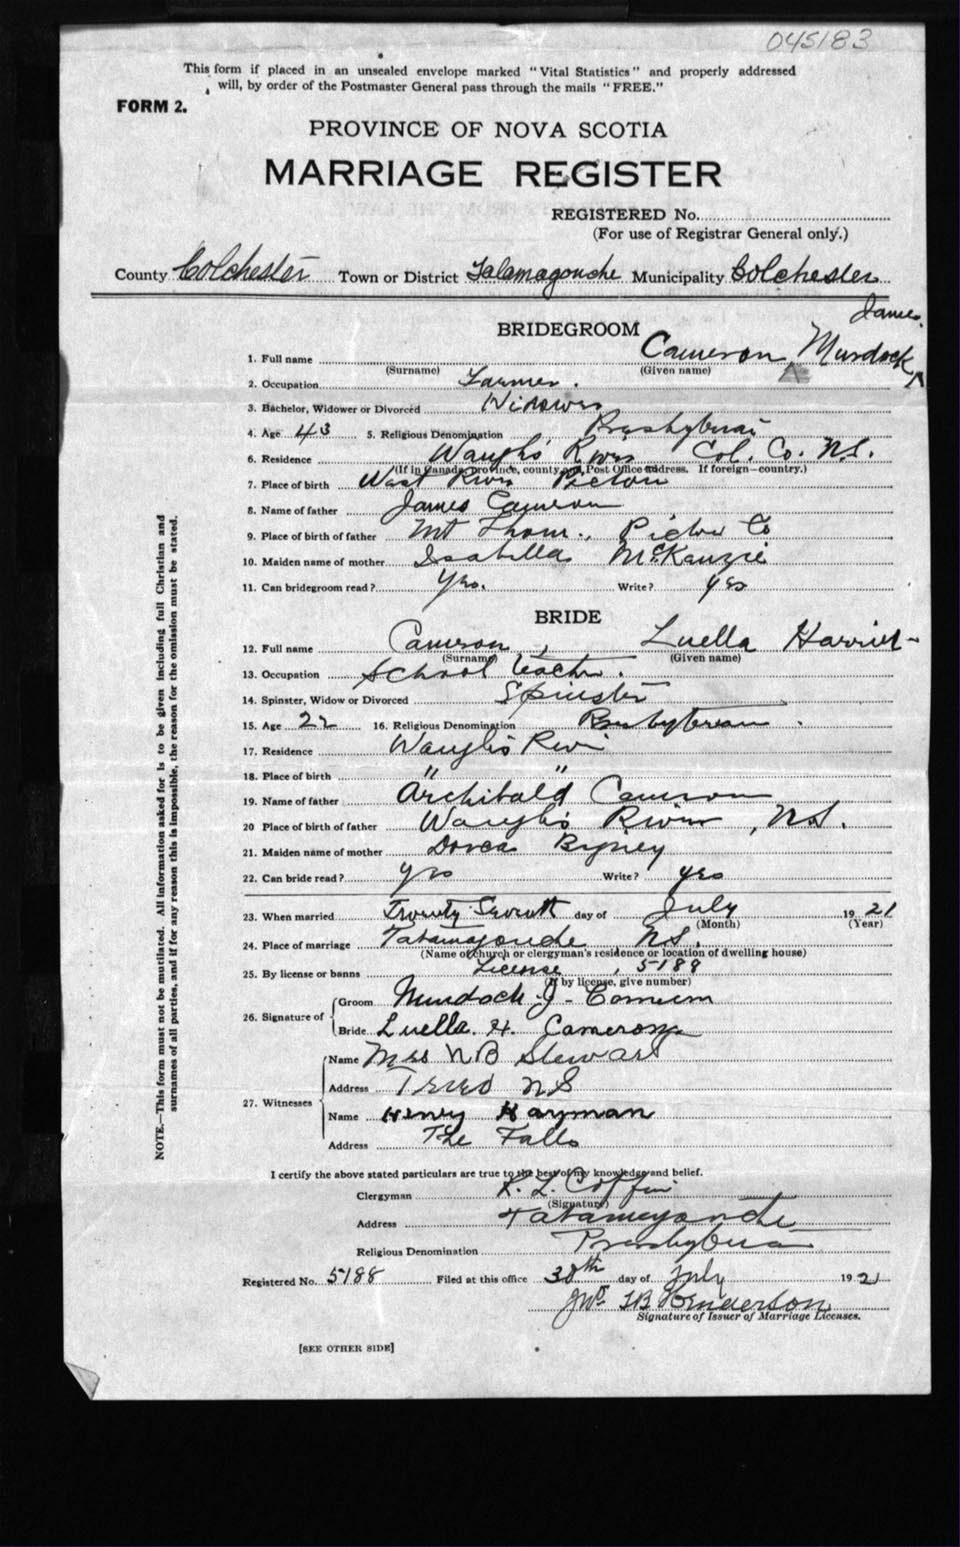 045183
This form if placed in an unsealed envelope marked "Vital Statistics" and properly addressed
will, by order of the Postmaster General pass through the mails "FREE."
FORM 2.
PROVINCE OF NOVA SCOTIA
MARRIAGE REGISTER
REGISTERED No.
(For use of Registrar General only.)
County Colchester Town or District Tatamagouche Municipality Colchester
James
BRIDEGROOM
1. Full name Cameron Murdock
(Surname) (Given name)
2. Occupation Farmer.
3. Bachelor, Widower or Divorced Widower
4. Age 43 5. Religious Denomination Presbyterian
6. Residence Waugh's River Col. Co. N.S.
(If in Canada, province, county and Post Office address. If foreign—country.)
7. Place of birth West River Pictou
8. Name of father James Cameron
9. Place of birth of father Mt Thom., Pictou Co
10. Maiden name of mother Isabella McKenzie
11. Can bridegroom read? Yes. Write? yes
BRIDE
12. Full name Cameron, Luella Harriet
(Surname) (Given name)
13. Occupation School teacher.
14. Spinster, Widow or Divorced Spinster
15. Age 22 16. Religious Denomination Presbyterian.
17. Residence Waugh's River
18. Place of birth " "
19. Name of father Archibald Cameron
20 Place of birth of father Waugh's River, N.S.
21. Maiden name of mother Dorcas
22. Can bride read? yes Write? yes
23. When married Twenty Seventh day of July 1921
(Month) (Year)
24. Place of marriage Tatamagouche N.S.
(Name of church or clergyman's residence or location of dwelling house)
25. By license or banns License, 5188
(If by license, give number)
26. Signature of Groom Murdock J. Cameron
Bride Luella H. Cameron
27. Witnesses Name Mrs N B Stewart
Address Truro NS
Name Henry Hayman
Address The Falls
I certify the above stated particulars are true to the best of my knowledge and belief.
Clergyman K. L. Coffin
(Signature)
Address Tatamagouche
Religious Denomination Presbyterian
Registered No. 5188 Filed at this office 30th day of July 1921
Henderson
Signature of Issuer of Marriage Licenses.
[SEE OTHER SIDE]
NOTE.—This form must not be mutilated. All information asked for is to be given including full Christian and
surnames of all parties, and if for any reason this is impossible, the reason for the omission must be stated.